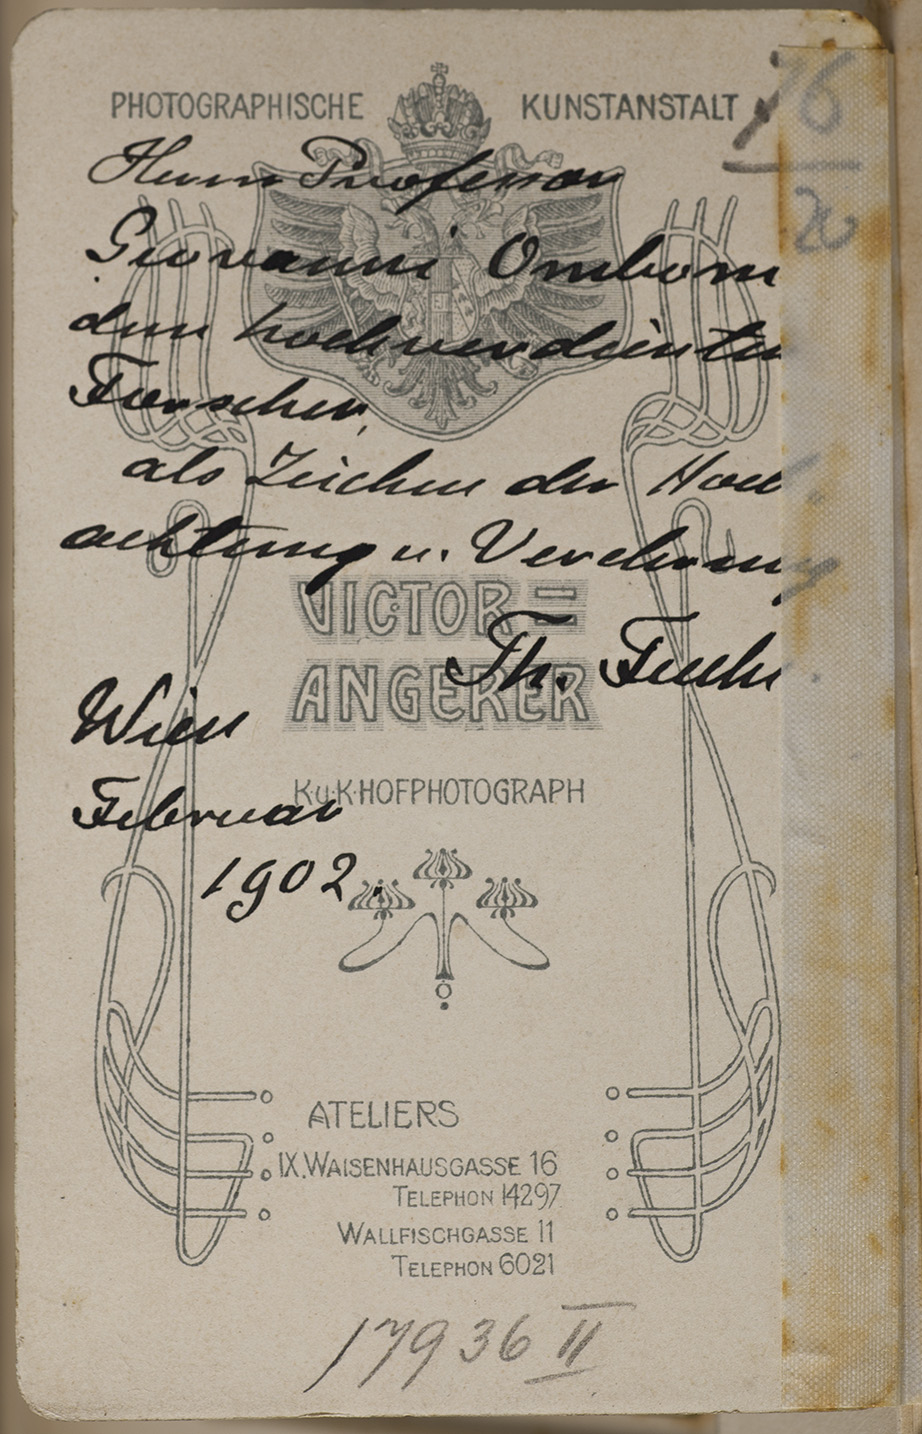 PHOTOGRAPHISCHE KUNSTANSTALT
76
20
Herrn Professor
Giovanni Ombom
dem hochverdienten
Forscher,
als Zeichen der Hoch
achtung u. Verehrung
VICTOR=
ANGERER
Th. Fuchs
Wien
K.u.K.HOFPHOTOGRAPH
Februar
1902.
ATELIERS
IX.WAISENHAUSGASSE 16
TELEPHON 14297
WALLFISCHGASSE 11
TELEPHON 6021
17936 II